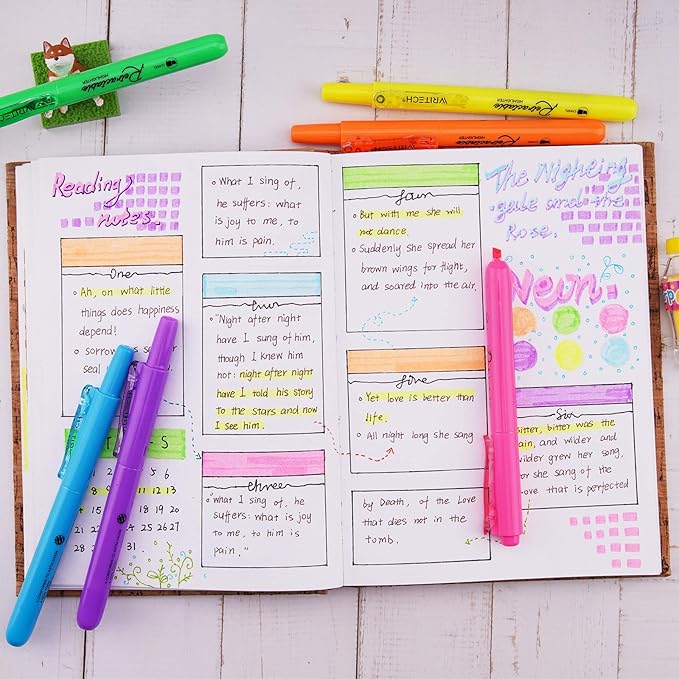 Retractable
HIGHLIGHTER
WRITECH
WRITECH®
Retractable
HIGHLIGHTER
Retractable
HIGHLIGHTER
Reading
notes.
One
Ah, on what little
things does happiness
depend!
sorrow
seal
S
8 9 10 11 12 13
18 19 20
25 26 27
28 29 30 31.
What I sing of,
he suffers: what
is joy to me, to
him is pain.
"Night after night
have I sung of him,
though I knew him
not: night after night
have I told his story
to the stars and now
I see him.
three
"What I sing of, he
suffers: what is joy
to me, to him is
pain."
four
But with me she will
not dance.
Suddenly she spread her
brown wings for flight,
and soared into the air.
five
Yet love is better than
life.
All night long she sang
by Death, of the Love
that does not in the
tomb.
The Nightin
gale and the
Rose.
Six
bitter was the
and wilder and
wilder grew her song,
she sang of the
that is perfected